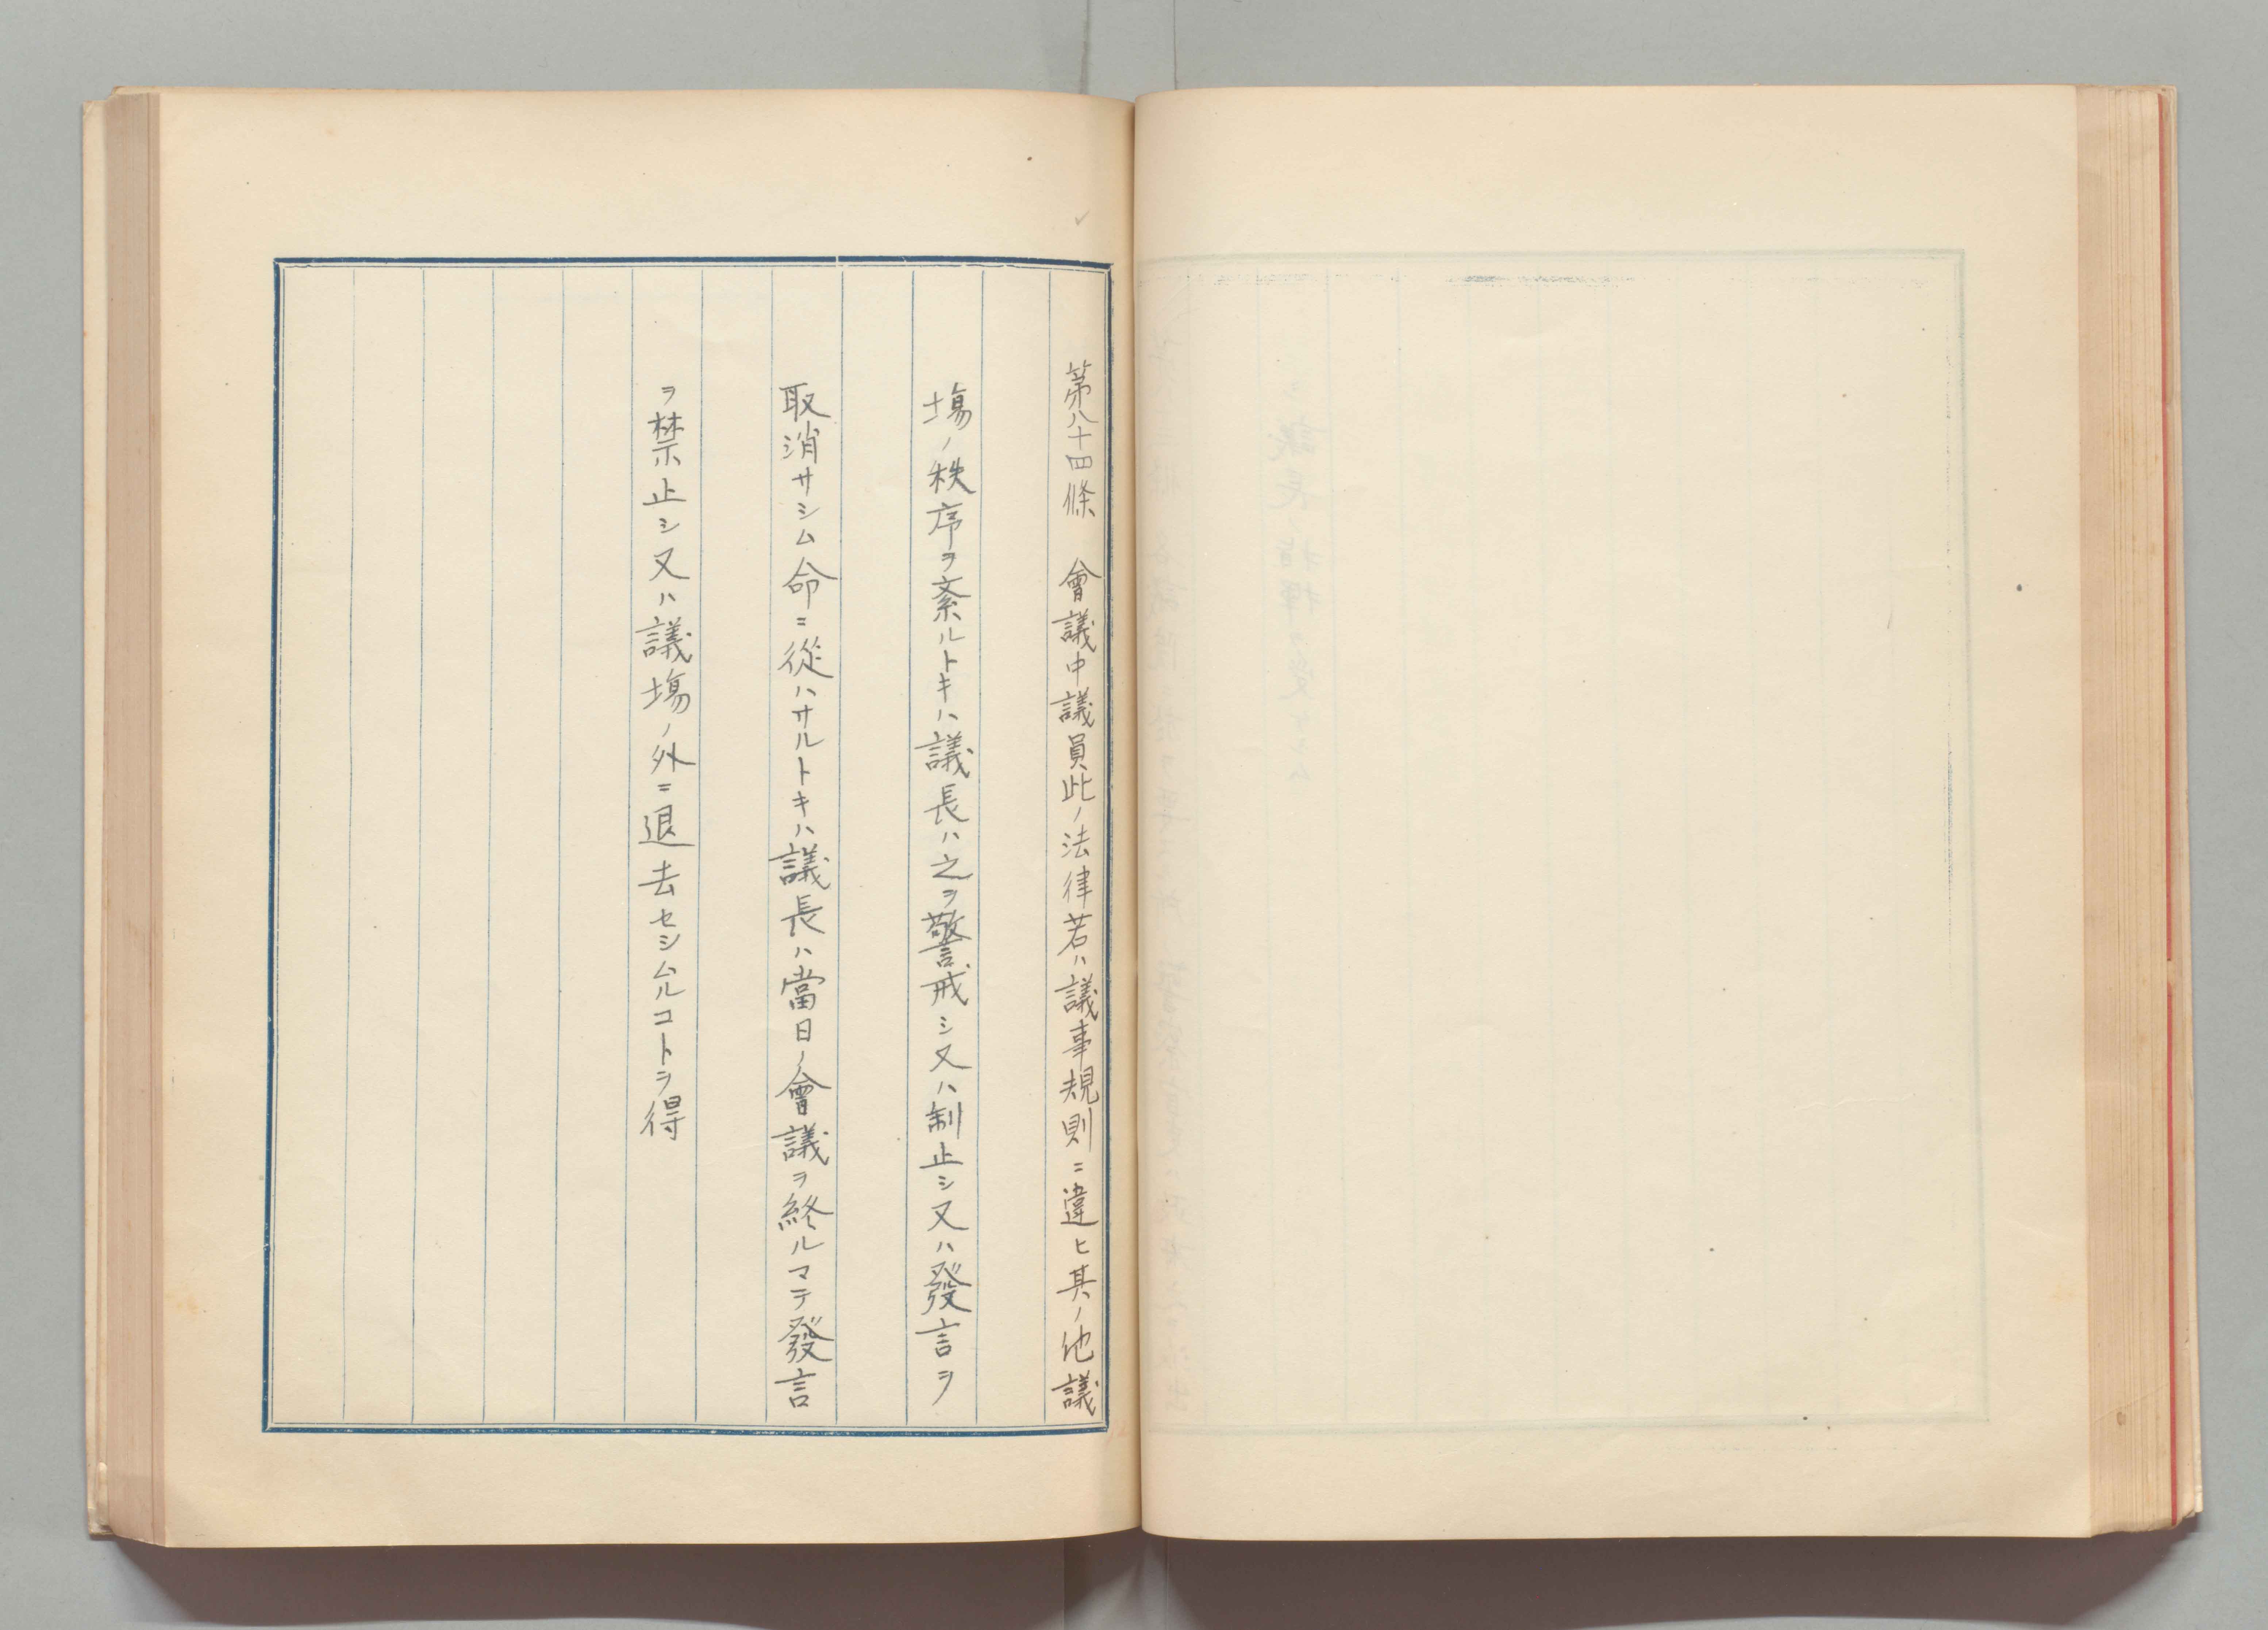 第八十四條　會議中議員此ノ法律若ハ議事規則ニ違ヒ其ノ他議
塲ノ秩序ヲ紊ルトキハ議長ハ之ヲ警戒シ又ハ制止シ又ハ發言ヲ
取消サシム命ニ從ハサルトキハ議長ハ當日ノ會議ヲ終ルマテ發言
ヲ禁止シ又ハ議塲ノ外ニ退去セシムルコトヲ得